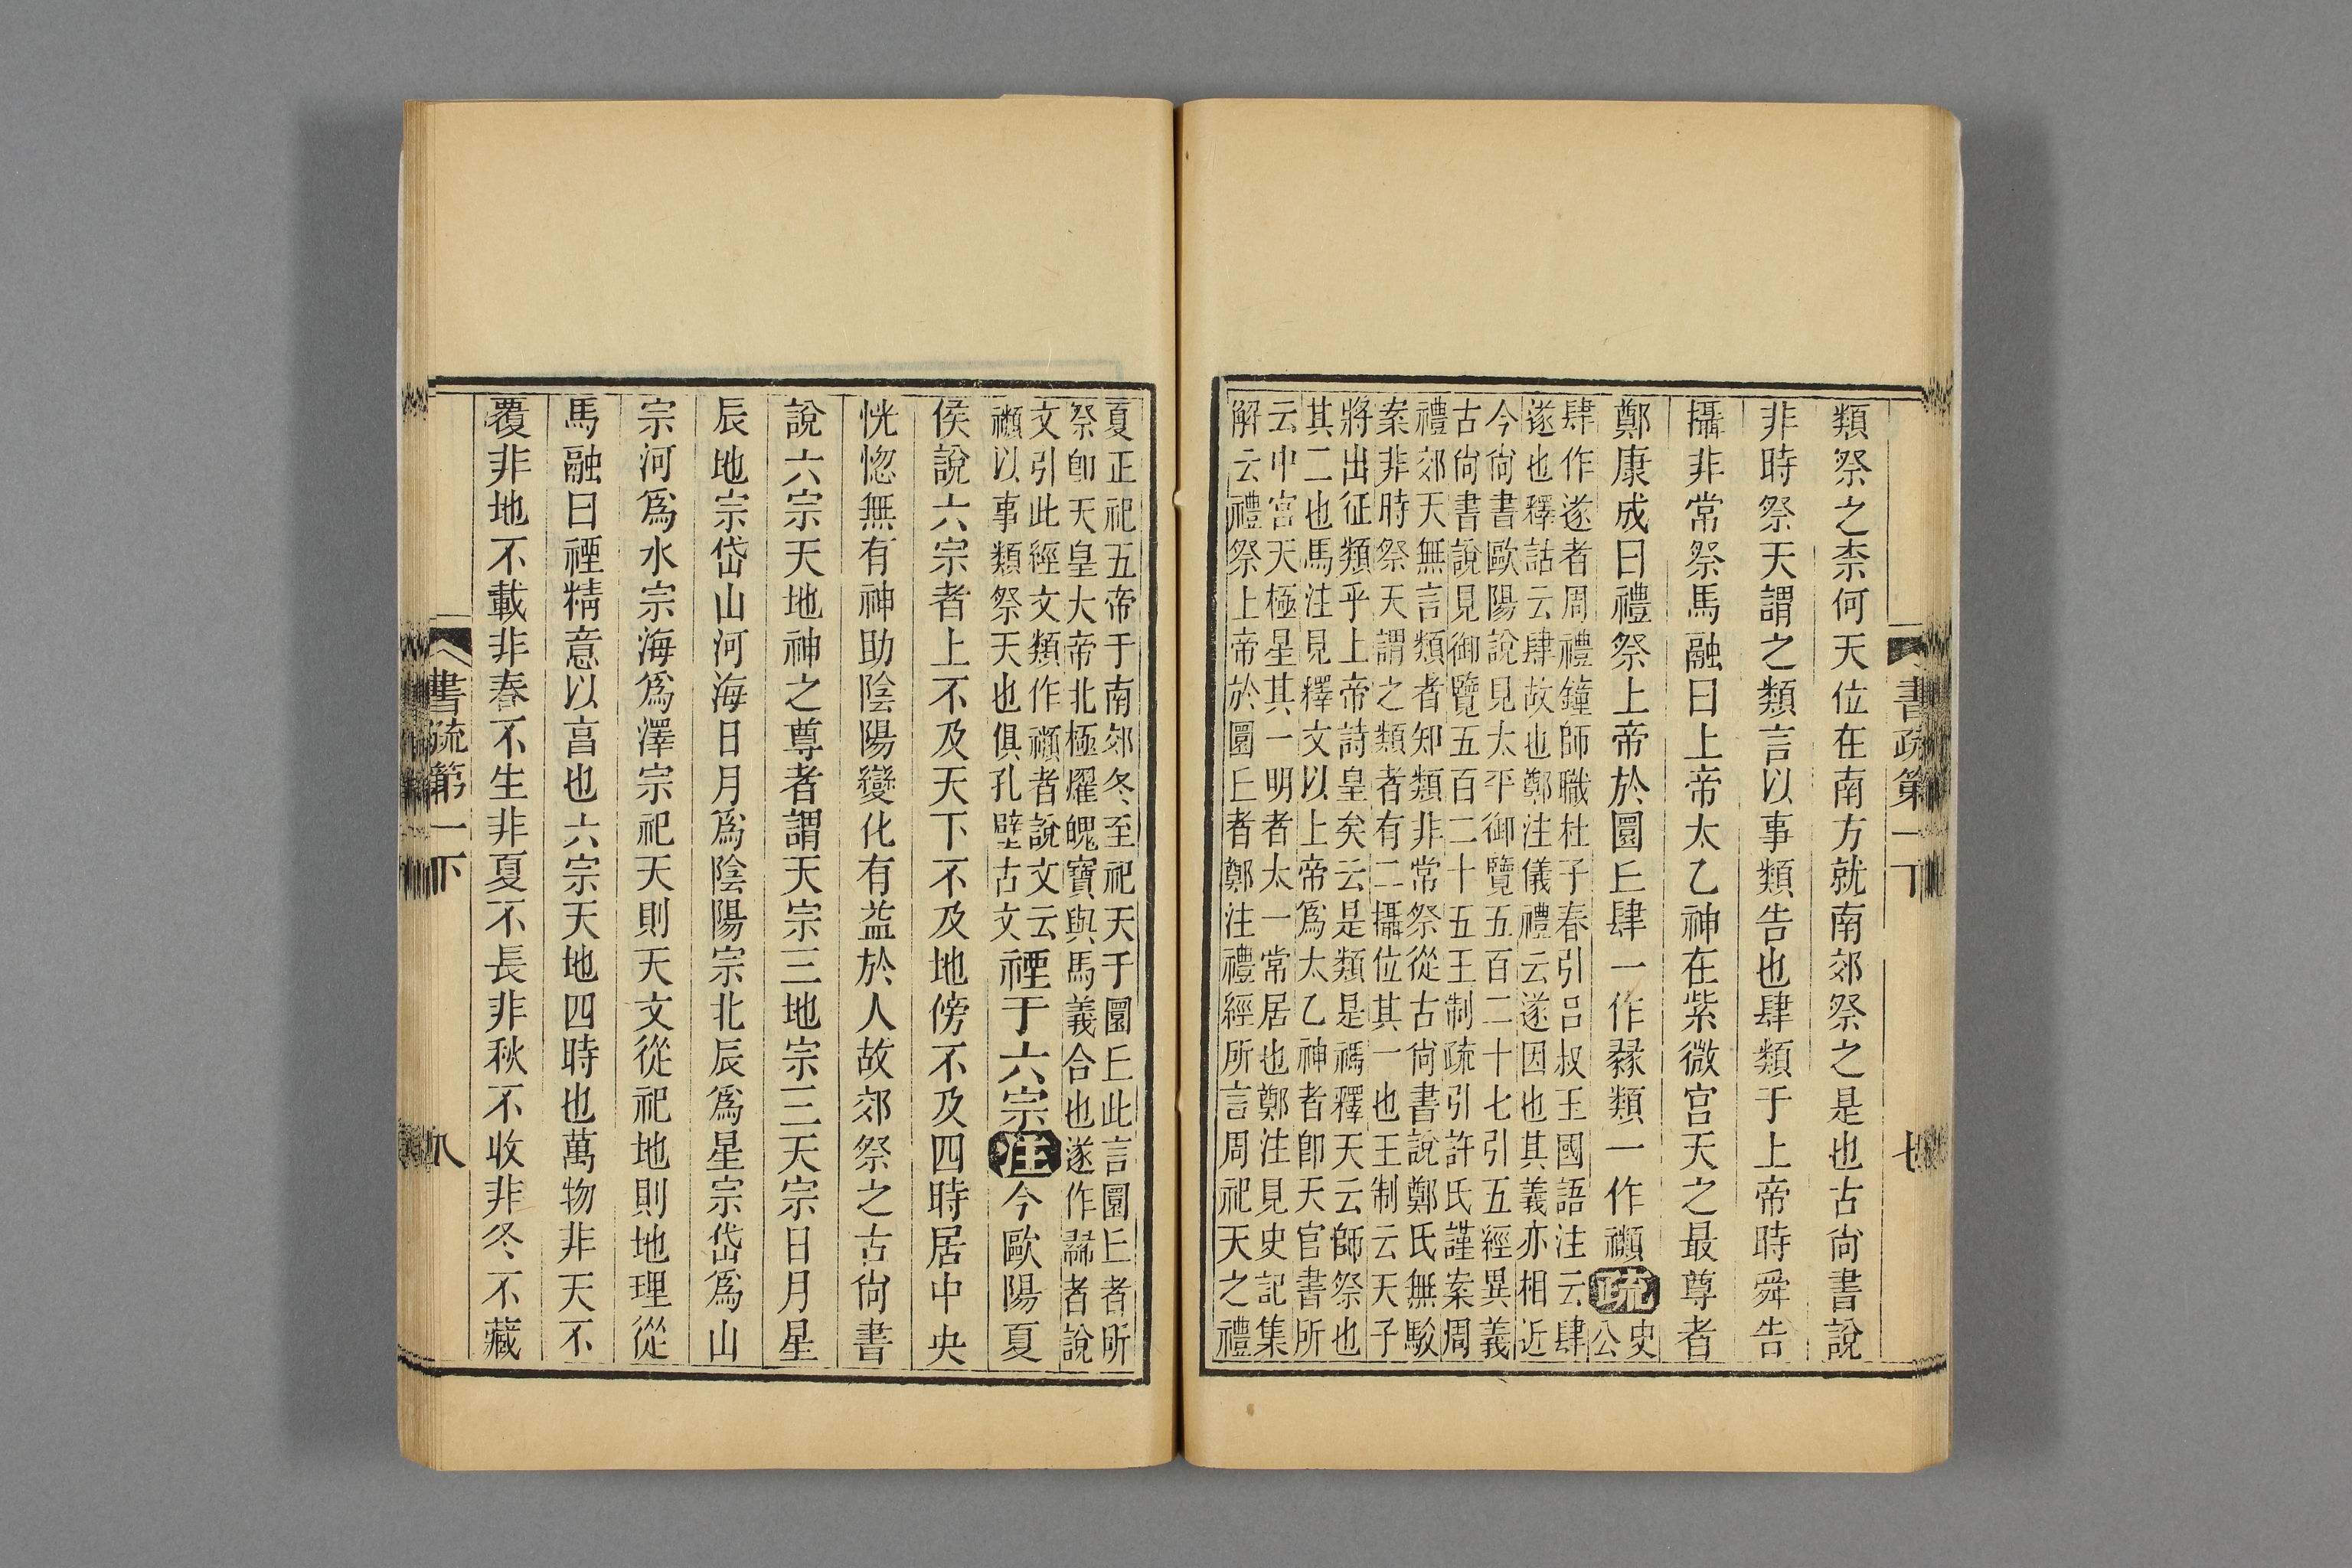 書疏第一下
七
類祭之柰何天位在南方就南郊祭之是也古尙書說
非時祭天謂之類言以事類告也肆類于上帝時舜告
攝非常祭馬融曰上帝太乙神在紫微宮天之最尊者
鄭康成曰禮祭上帝於圜丘肆一作䜌類一作禷疏史
公
肆作遂者周禮鐘師職杜子春引呂叔玉國語注云肆
遂也釋詁云肆故也鄭注儀禮云遂因也其義亦相近
今尙書歐陽說見太平御覽五百二十七引五經異義
古尙書說見御覽五百二十五王制疏引許氏謹案周
禮郊天無言類者知類非常祭從古尙書說鄭氏無駁
案非時祭天謂之類者有二攝位其一也王制云天子
將出征類乎上帝詩皇矣云是類是禡釋天云師祭也
其二也馬注見釋文以上帝爲太乙神者卽天官書所
云中宮天極星其一明者太一常居也鄭注見史記集
解云禮祭上帝於圜丘者鄭注禮經所言周祀天之禮
夏正祀五帝于南郊冬至祀天于圜丘此言圜丘者所
祭卽天皇大帝北極燿魄寶與馬義合也遂作䜌者說
文引此經文類作禷者說文云
禷以事類祭天也俱孔壁古文禋于六宗注今歐陽夏
侯說六宗者上不及天下不及地傍不及四時居中央
恍惚無有神助陰陽變化有益於人故郊祭之古尙書
說六宗天地神之尊者謂天宗三地宗三天宗日月星
辰地宗岱山河海日月爲陰陽宗北辰爲星宗岱爲山
宗河爲水宗海爲澤宗祀天則天文從祀地則地理從
馬融曰禋精意以亯也六宗天地四時也萬物非天不
覆非地不載非春不生非夏不長非秋不收非冬不藏
書疏第一下
八